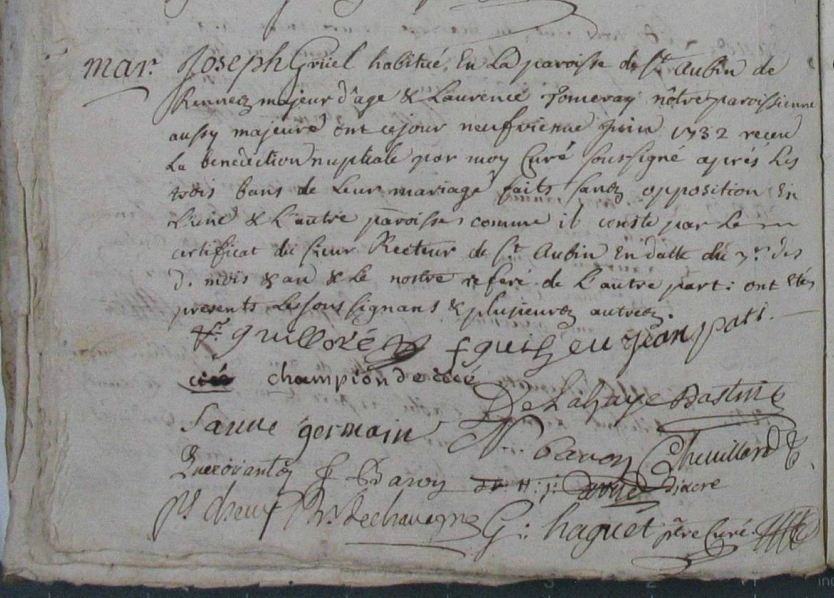 mar. Joseph Gruel habitué En La paroisse de St Aubin de
Rennes majeur d'age & Laurence pomeray nôtre paroissienne
aussy majeure ont cejour neufvieme juin 1732 receu
La benediction nuptiale par moy Curé soussigné aprés Les
trois bans de Leur mariage faits sans opposition En
L'une & L'autre paroisse comme il conste par Le
certificat du sieur Recteur de St Aubin En datte du 7e des
d. mois & an & Le nostre referé de L'autre part: ont Etés
presents Les soussignans & plusieures autres.
guilloré jean pati
champion de cicé
DeLahaye Bastin
Sauue germain N. baron Chevillard
F Baron diacre
G: haguet ptre Curé